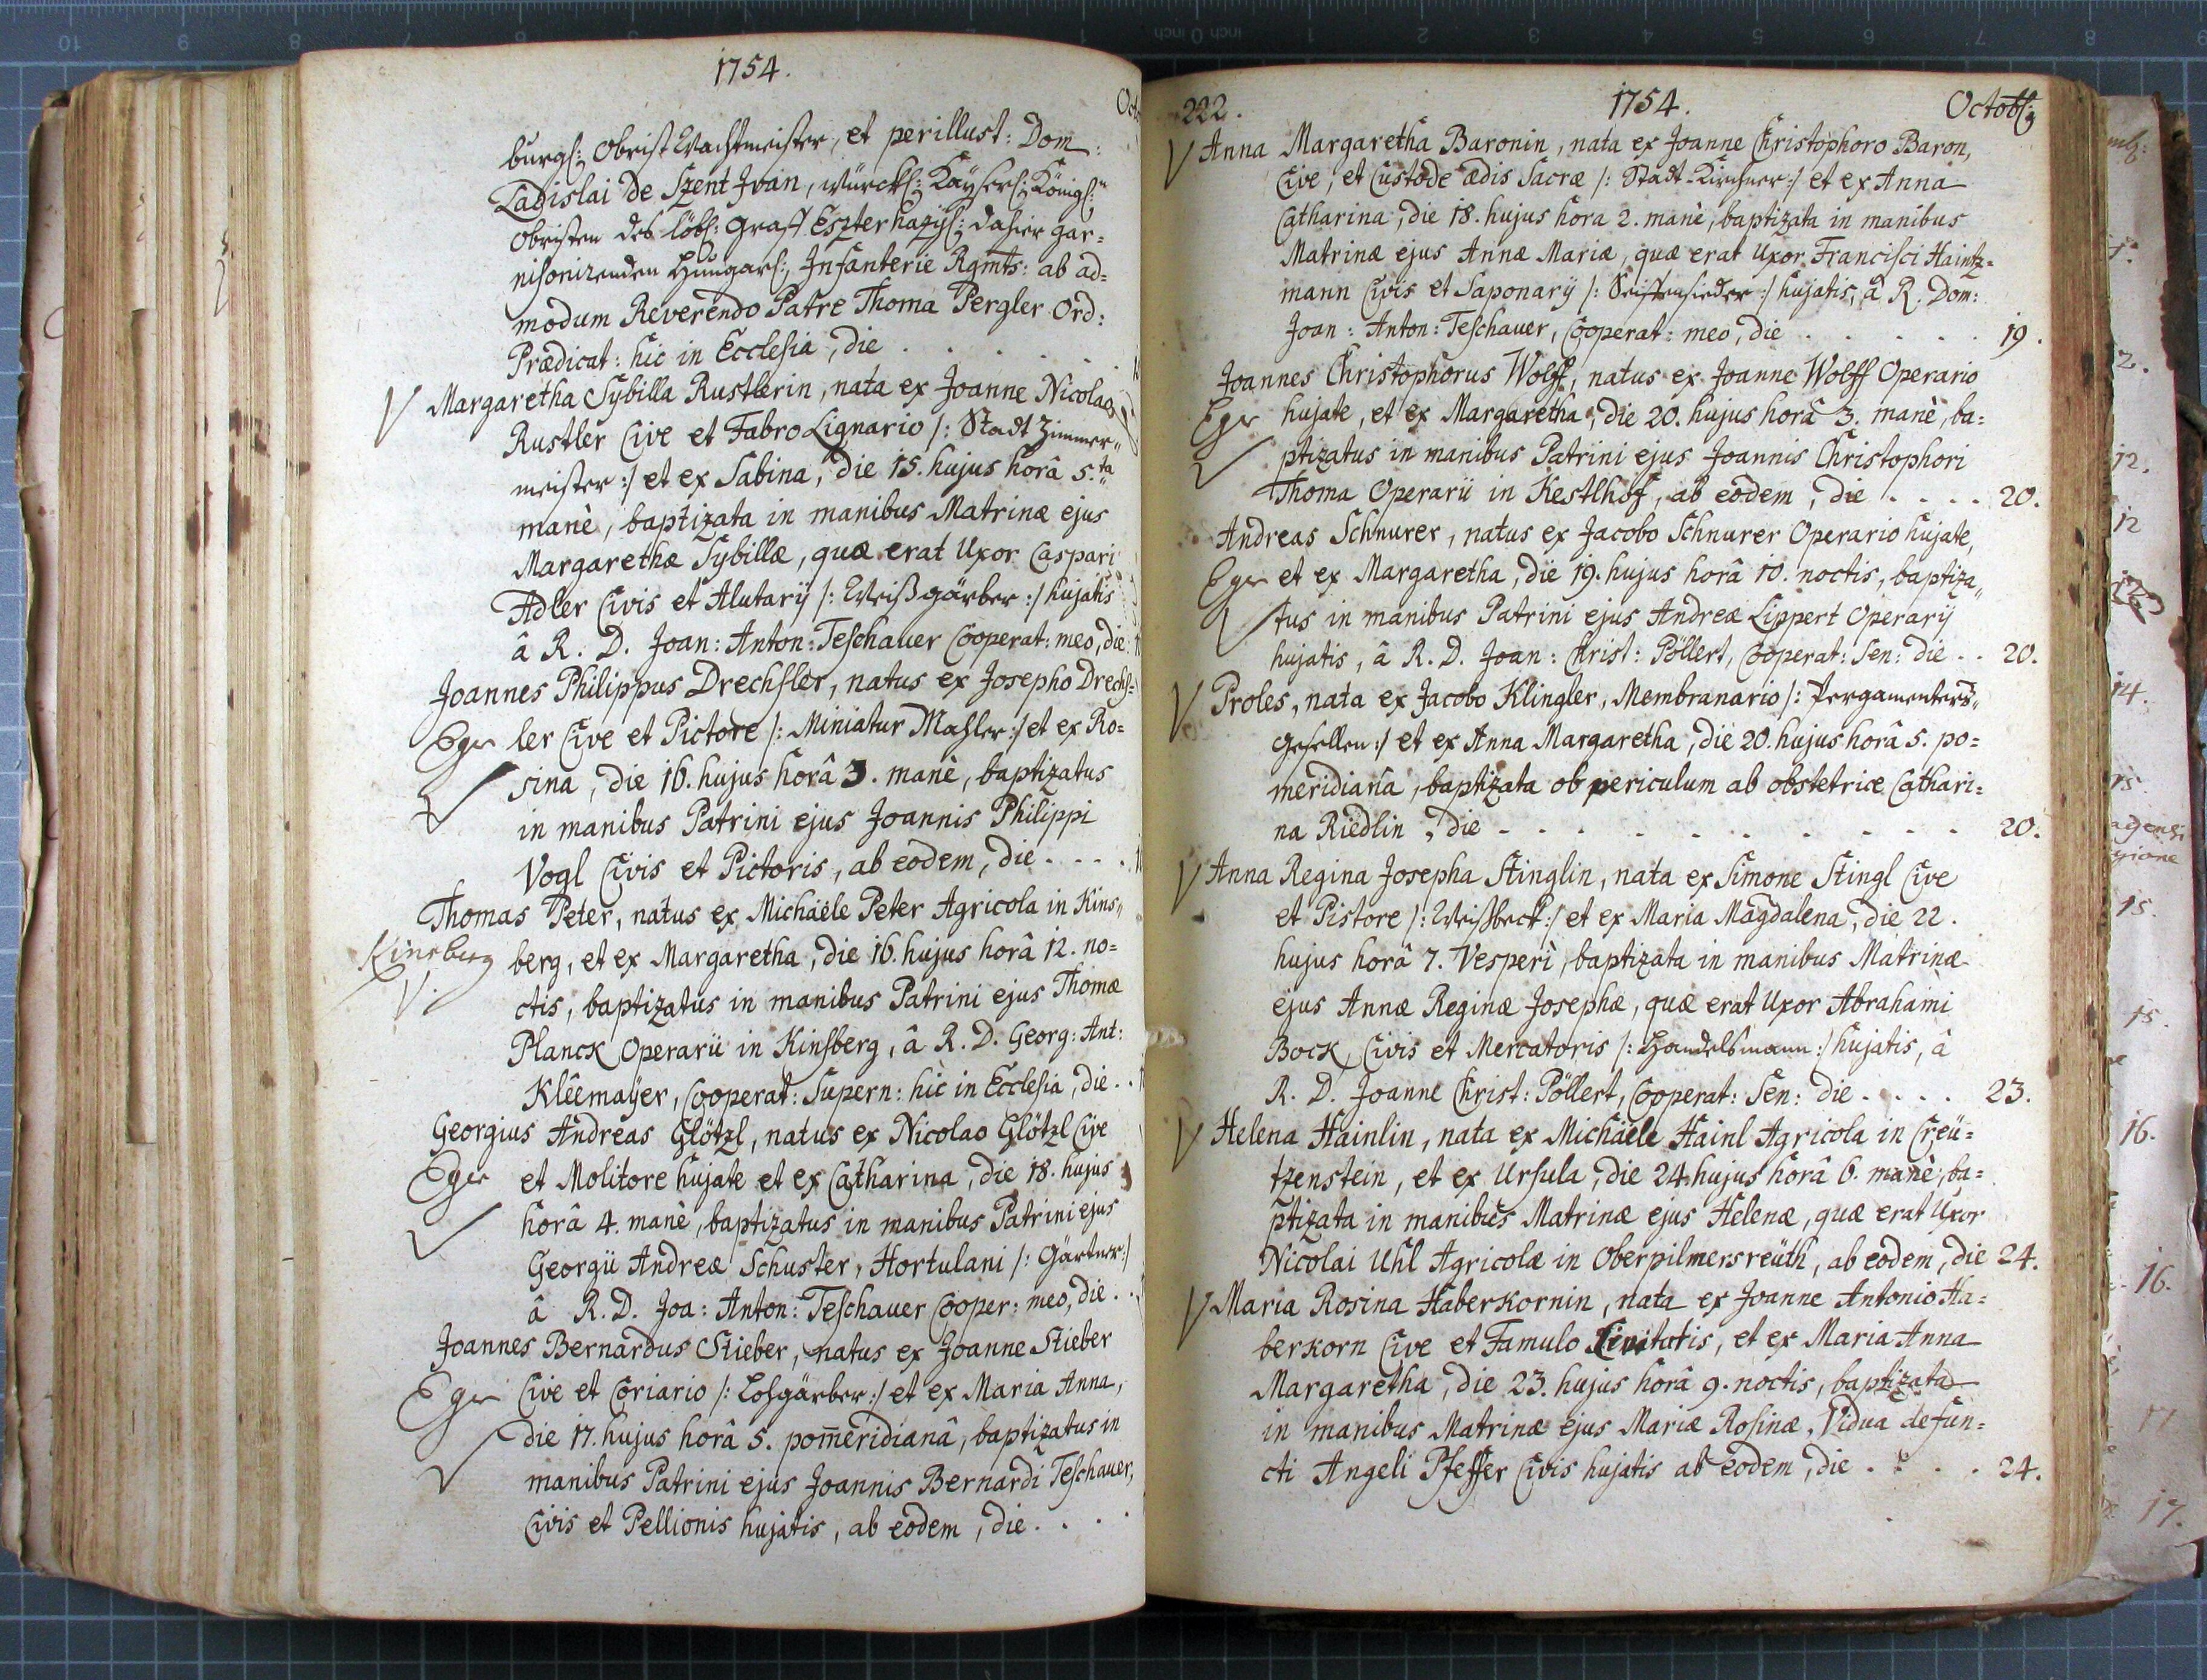 1754.
Oct
burgs: Obrist Wachtmeister, et perillust: Dom:
Ladislai de Szent Ivan, würckl: Kayserl: Königl:
Obristen des löbl: Graff Eszterhazyl: dahier gar=
nisonizenden Hungarl: Infanterie Rgmts: ab ad=
modum Reverendo Patre Thoma Pergler Ord:
Prædicat: hic in Ecclesia, die . . . . .
Margaretha Sybilla Rustlerin, nata ex Joanne Nicolao
Rustler Cive et Fabro Lignario /: Stadt Zimmer„
meister :/ et ex Sabina, die 15. hujus horâ 5.ta
manè, baptizata in manibus Matrinæ ejus
Margarethæ Sybillæ, quæ erat Uxor Caspari
Adler Civis et Alutarij /: Weißgärber :/ hujatis
â R. D. Joan: Anton: Teschauer Cooperat: meo, die
Joannes Philippus Drechsler, natus ex Josepho Drechs=
Eger ler Cive et Pictore /: Miniatur Mahler :/ et ex Ro=
sina, die 16. hujus horâ 3. manè, baptizatus
in manibus Patrini ejus Joannis Philippi
Vogl Civis et Pictoris, ab eodem, die . . . .
Thomas Peter, natus ex Michaële Peter Agricola in Kins„
Kinsberg berg, et ex Margaretha, die 16. hujus horâ 12. no=
ctis, baptizatus in manibus Patrini ejus Thomæ
Planck Operarii in Kinsberg, â R. D. Georg: Ant:
Kleemaÿer, Cooperat: Supern: hic in Ecclesia, die . .
Georgius Andreas Glötzl, natus ex Nicolao Glötzl Cive
Eger et Molitore hujate et ex Catharina, die 18. hujus
horâ 4. manè, baptizatus in manibus Patrini ejus
Georgii Andreæ Schuster, Hortulani /: Gärtner :/
â R. D. Joa: Anton: Teschauer Cooper: meo, die . .
Joannes Bernardus Stieber, natus ex Joanne Stieber
Eger Cive et Coriario /: Lohgärber :/ et ex Maria Anna,
die 17. hujus horâ 5. pom̄eridianâ, baptizatus in
manibus Patrini ejus Joannis Bernardi Teschauer,
Civis et Pellionis hujatis, ab eodem, die . . . .
222. 1754. Octobr:
Anna Margaretha Baronin, nata ex Joanne Christophoro Baron,
Cive, et Custode ædis Sacræ /: Stadt-Kirchner :/ et ex Anna
Catharina, die 18. hujus hora 2. manè, baptizata in manibus
Matrinæ ejus Annæ Mariæ, quæ erat Uxor Francisci Haintz=
mann Civis et Saponarij /: Seiffensieder :/ hujatis, â R. Dom:
Joan: Anton: Teschauer, Cooperat: meo, die . . . . . 19.
Joannes Christophorus Wolff, natus ex Joanne Wolff Operario
Eger hujate, et ex Margaretha, die 20. hujus horâ 3. manè, ba=
ptizatus in manibus Patrini ejus Joannis Christophori
Thoma Operarii in Kestlhof, ab eodem, die . . . . 20.
Andreas Schnurer, natus ex Jacobo Schnurer Operario hujate,
Eger et ex Margaretha, die 19. hujus horâ 10. noctis, baptiza„
tus in manibus Patrini ejus Andreæ Lippert Operarij
hujatis, â R. D. Joan: Christ: Pöllert, Cooperat: Sen: die . . 20.
Proles, nata ex Jacobo Klingler, Membranario /: Pergamenters„
gesellen :/ et ex Anna Margaretha, die 20. hujus horâ 5. po=
meridiana, baptizata ob periculum ab obstetrice Cathari=
na Riedlin, die . . . . . . . . . . 20.
Anna Regina Josepha Stinglin, nata ex Simone Stingl Cive
et Pistore /: Weißbeck :/ et ex Maria Magdalena, die 22.
hujus horâ 7. Vesperì, baptizata in manibus Matrinæ
ejus Annæ Reginæ Josephæ, quæ erat Uxor Abrahami
Bock, Civis et Mercatoris /: Handelsmann :/ hujatis, â
R. D. Joanne Christ: Pöllert, Cooperat: Sen: die . . . . 23.
Helena Hainlin, nata ex Michaële Hainl Agricola in Creü=
tzenstein, et ex Ursula, die 24. hujus horâ 6. manè, ba=
ptizata in manibus Matrinæ ejus Helenæ, quæ erat Uxor
Nicolai Uhl Agricolæ in Oberpilmersreüth, ab eodem, die 24.
Maria Rosina Haberkornin, nata ex Joanne Antonio Ha=
berkorn Cive et Famulo Civitatis, et ex Maria Anna
Margaretha, die 23. hujus horâ 9. noctis, baptizata
in manibus Matrinæ ejus Mariæ Rosinæ, Vidua defun=
cti Angeli Pfeffer Civis hujatis ab eodem, die . . . . 24.
2.
12.
12
14.
15.
15.
15.
16.
16.
17
17.